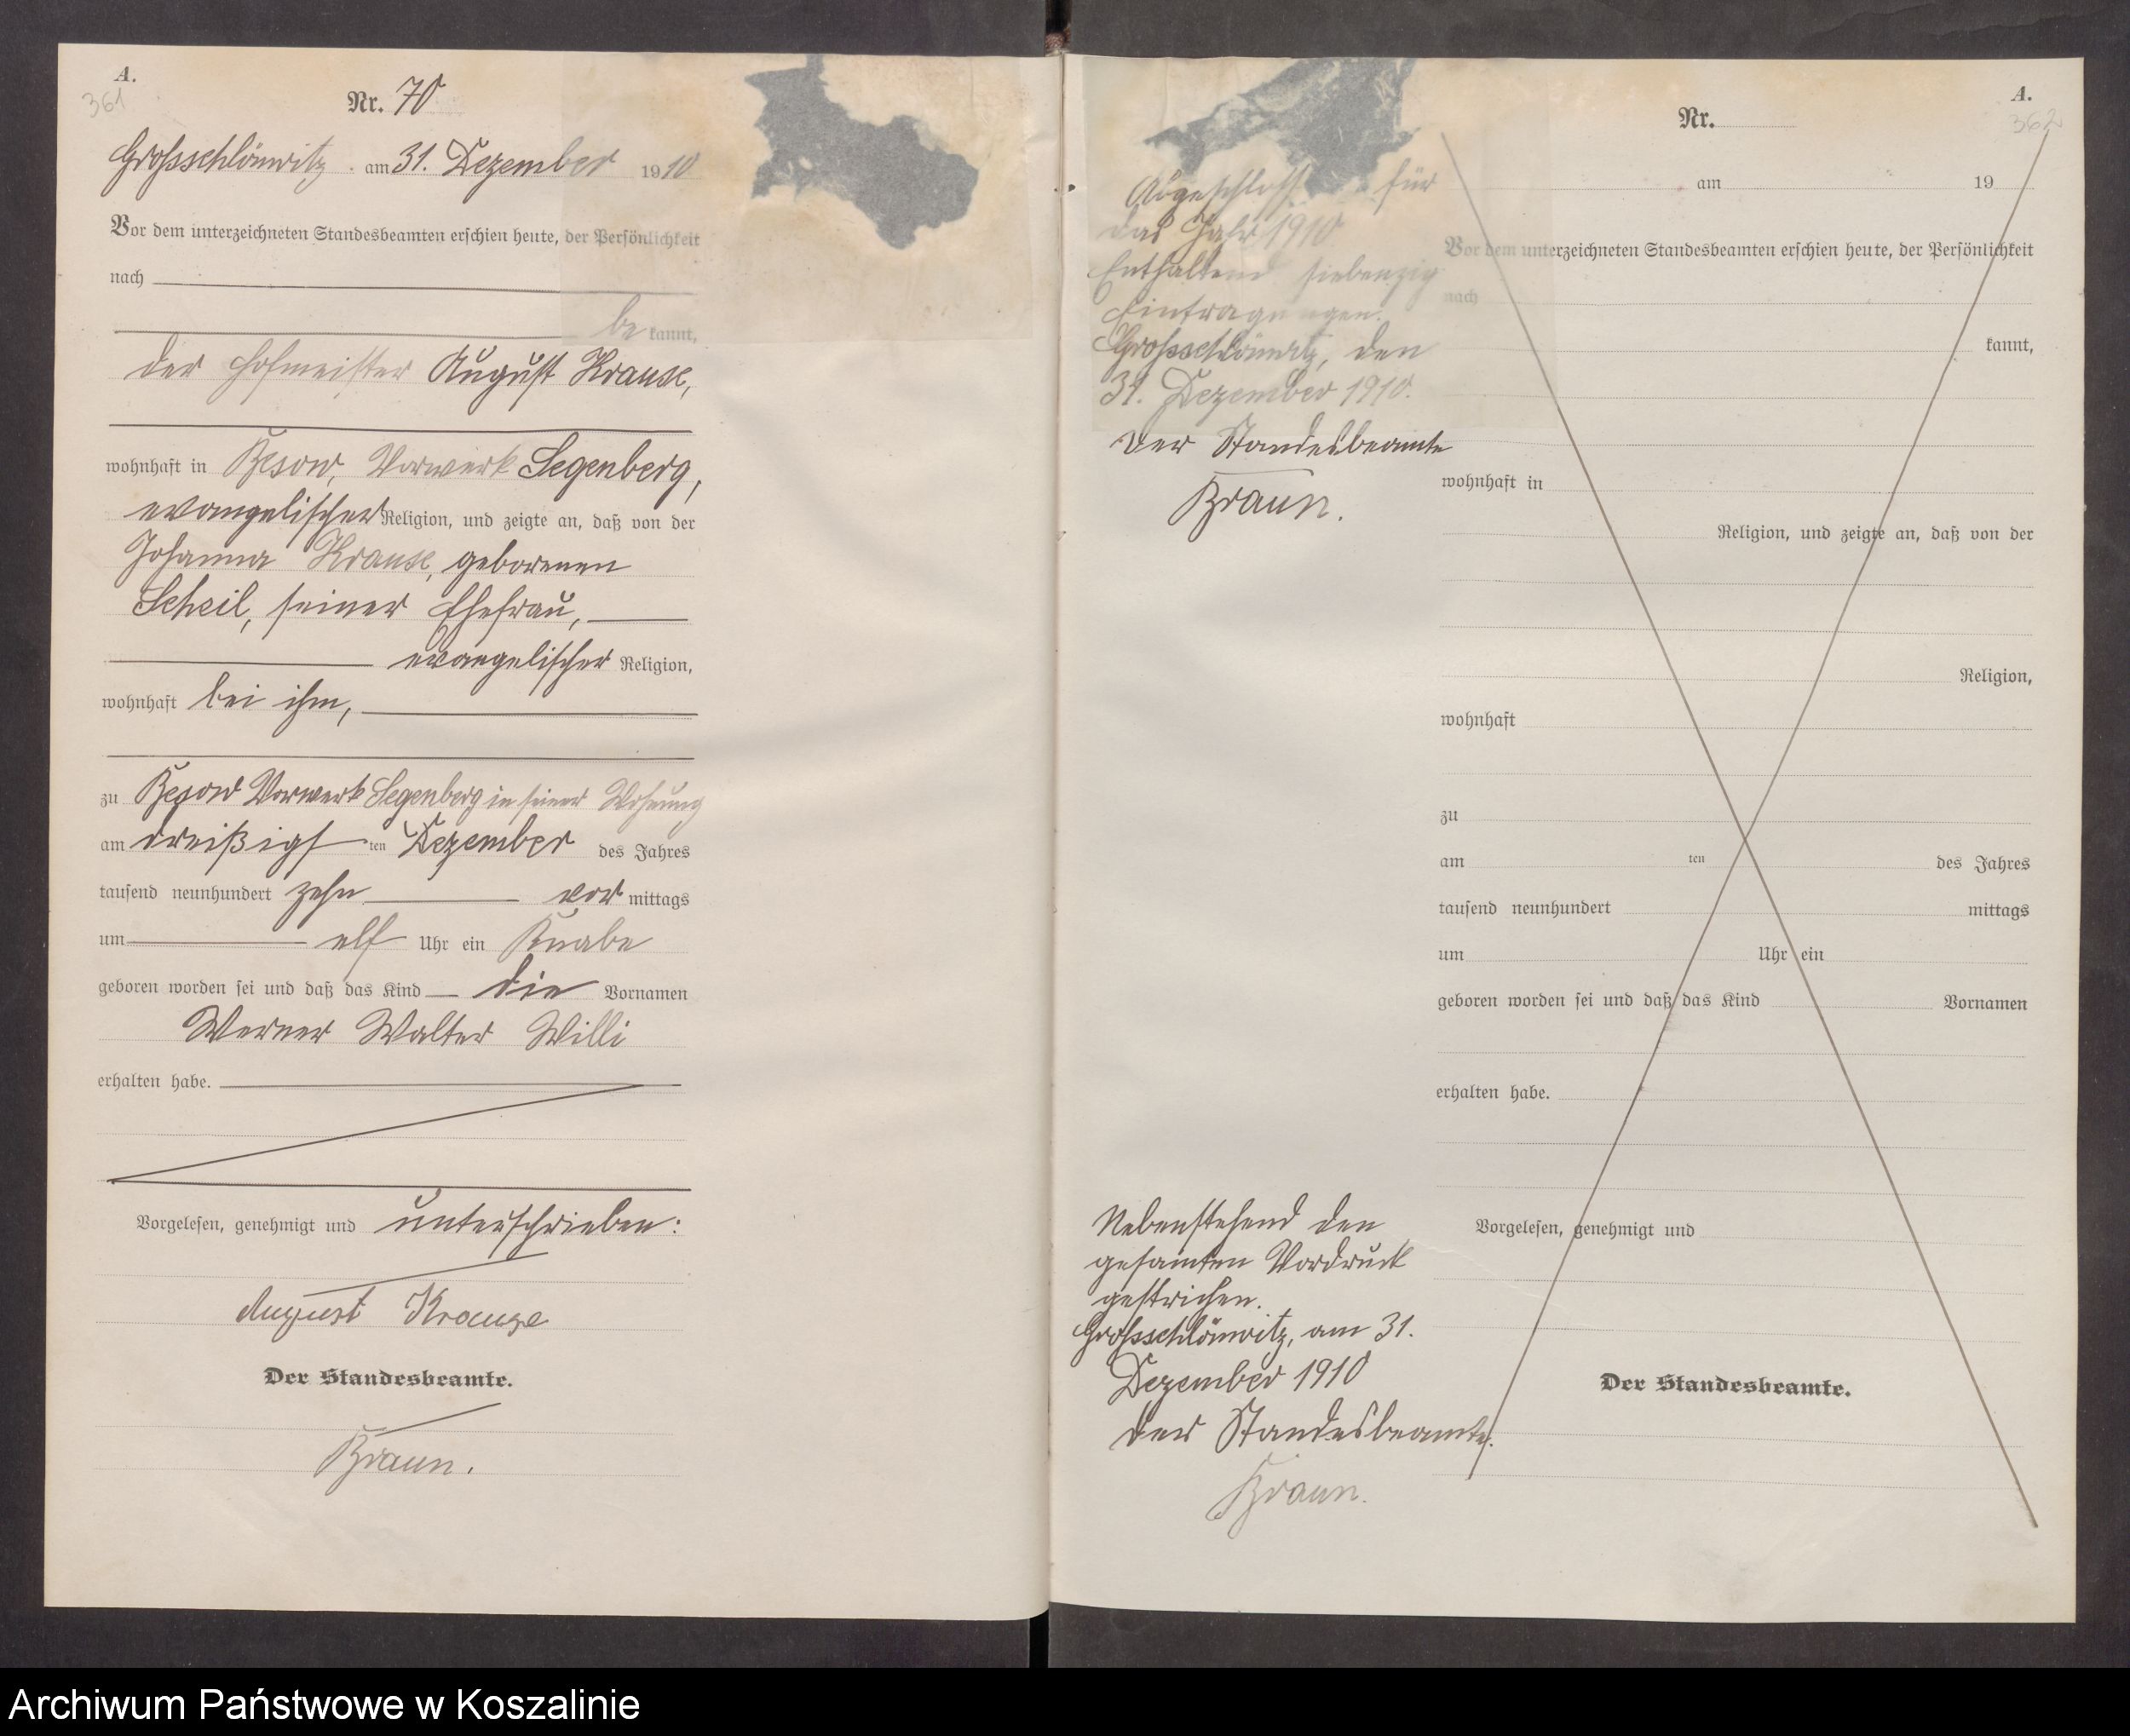 A.
361
Nr. 70
Grossschlönwitz am 31. Dezember 1910
Vor dem unterzeichneten Standesbeamten erschien heute, der Persönlichkeit
nach
be kannt,
der Hofmeister August Krause,
wohnhaft in Besow, Vorwerk Segenberg,
evangelischer Religion, und zeigte an, daß von der
Johanna Krause, geborenen
Scheil, seiner Ehefrau,
evangelischer Religion,
wohnhaft bei ihm,
zu Besow Vorwerk Segenberg in seiner Wohnung
am dreißigsten Dezember des Jahres
tausend neunhundert zehn vor mittags
um elf Uhr ein Knabe
geboren worden sei und daß das Kind die Vornamen
Werner Walter Willi
erhalten habe.
Vorgelesen, genehmigt und unterschrieben:
August Krause
Der Standesbeamte.
Braun.
Abgeschloss für
das Jahr 1910
Enthaltend siebenzig
Eintragungen.
Grossschlönwitz, den
31. Dezember 1910.
Der Standesbeamte
Braun.
Nebenstehend den
gesamten Vordruck
gestrichen.
Grossschlönwitz, am 31.
Dezember 1910
Der Standesbeamte.
Braun.
A.
362
Nr.
am 19
Vor dem unterzeichneten Standesbeamten erschien heute, der Persönlichkeit
nach
kannt,
wohnhaft in
Religion, und zeigte an, daß von der
Religion,
wohnhaft
zu
am ten des Jahres
tausend neunhundert mittags
um Uhr ein
geboren worden sei und daß das Kind Vornamen
erhalten habe.
Vorgelesen, genehmigt und
Der Standesbeamte.
Archiwum Państwowe w Koszalinie